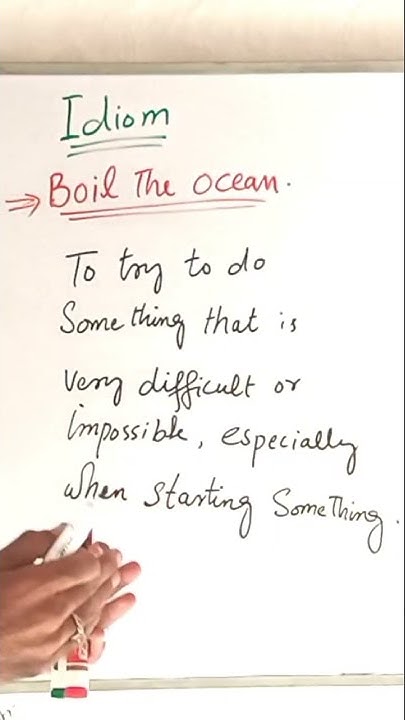 Idiom
⇒ Boil The ocean.
To try to do
Something that is
very difficult or
impossible, especially
when starting Something.